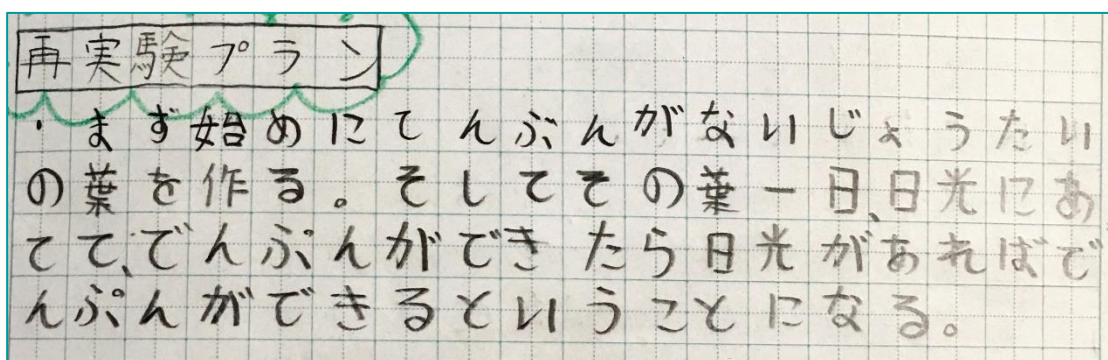 再実験プラン
・まず始めにてんぶんがないじょうたい
の葉を作る。そしてその葉一日、日光にあ
てて、でんぷんができたら日光があればで
んぷんができるということになる。